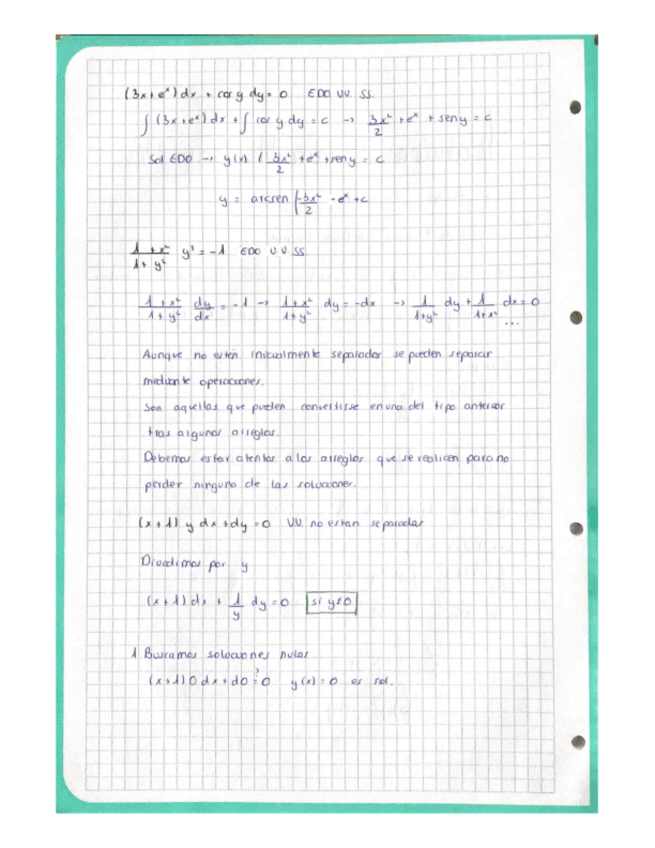 (3x+eˣ) dx + cos y dy = 0 EDO VV. SS.
∫ (3x+eˣ) dx + ∫ cos y dy = c → 3x²/2 + eˣ + sen y = c
Sol EDO → y(x) / 3x²/2 + eˣ + sen y = c
y = arcsen (-3x²/2 - eˣ + c
1+x²/1+y² y' = -1 EDO VV SS.
1+x²/1+y² dy/dx = -1 → 1+x²/1+y² dy = -dx → 1/1+y² dy + 1/1+x² dx = 0
...
Aunque no estén inicialmente separadas se pueden separar
mediante operaciones.
Son aquellas que pueden convertirse en una del tipo anterior
tras algunos arreglos.
Debemos estar atentos a los arreglos que se realicen para no
perder ninguna de las soluciones.
(x+1) y dx + dy = 0 VV. no estan separadas
Dividimos por y
(x+1) dx + 1/y dy = 0 si y≠0
1 Buscamos soluciones nulas
(x+1) 0 dx + d0 ?= 0 y(x) = 0 es sol.